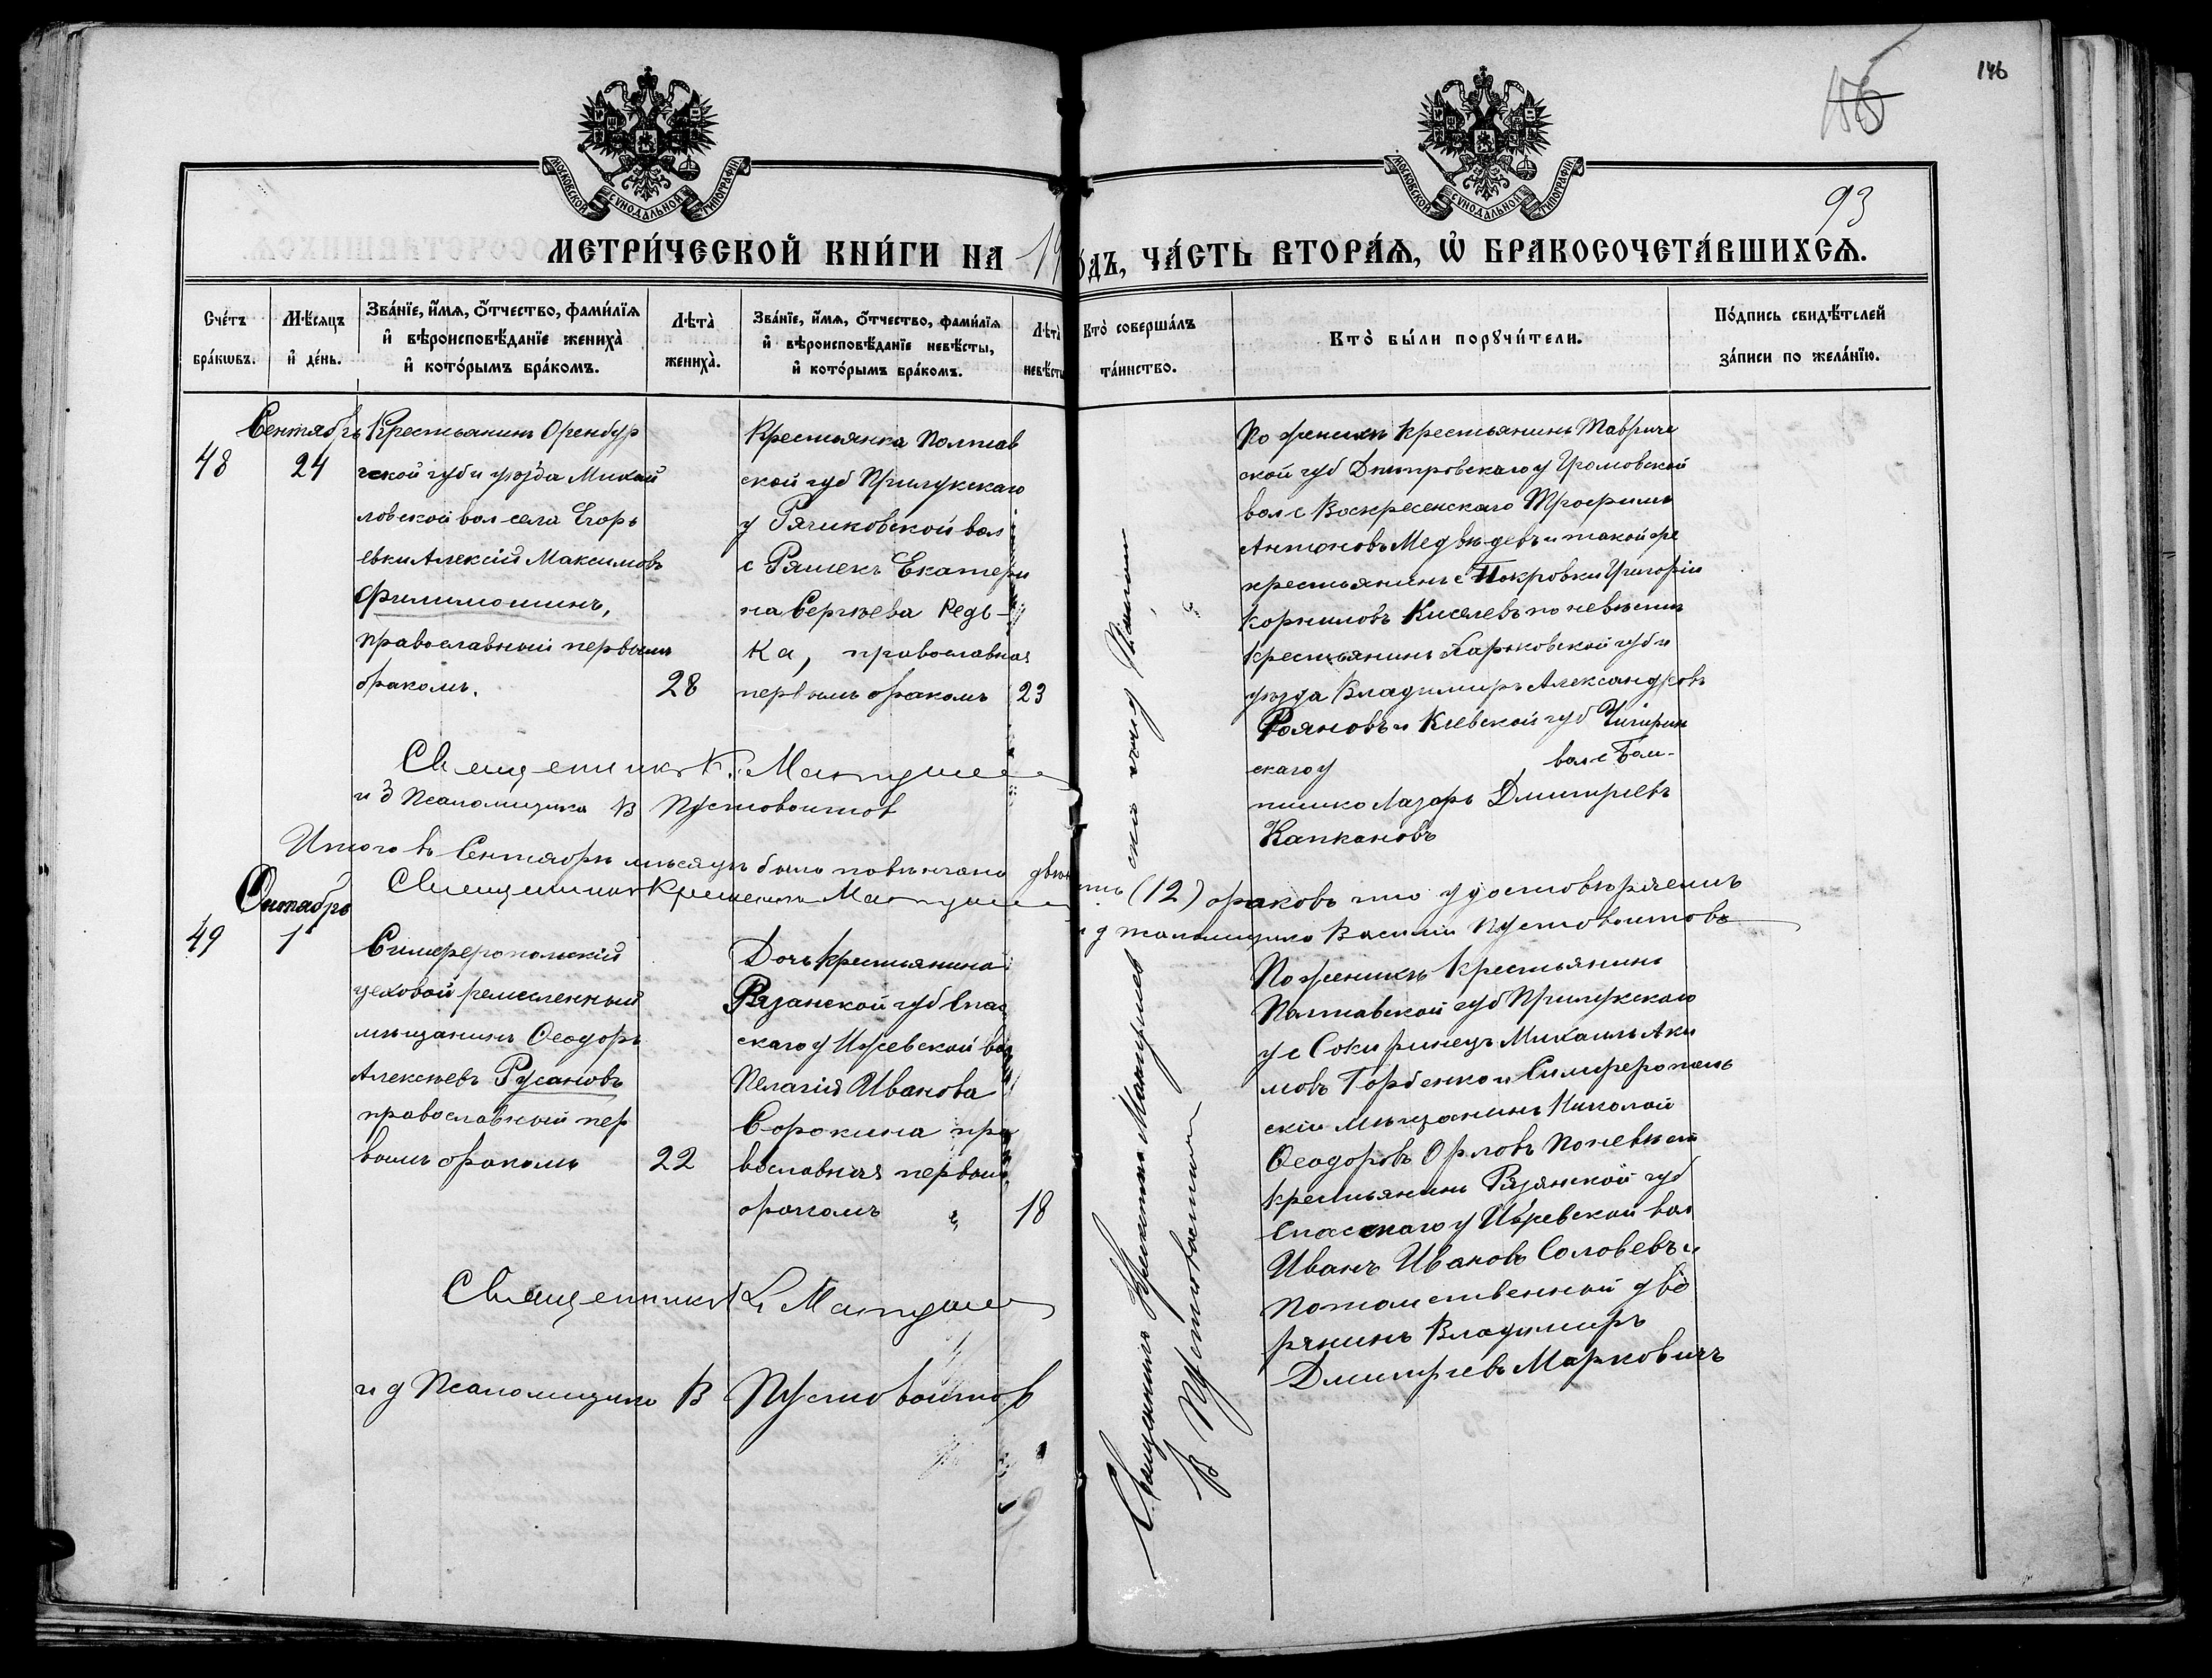 146
93
МОСКОВСКОЙ СѴНОДАЛЬНОЙ ТИПОГРАФІИ
МОСКОВСКОЙ СѴНОДАЛЬНОЙ ТИПОГРАФІИ
МЕТРИ́ЧЕСКОЙ КНИ́ГИ НА 19
О́ДЪ, ЧА́СТЬ ВТОРА́Ѧ, Ѽ БРАКОСОЧЕТА́ВШИХСѦ.
Сче́тъ бра́кѡвъ.
Мѣ́сѧцъ и҆ де́нь.
Зва́нїе, и҆́мѧ, о҆́тчество, фами́лїѧ
и҆ вѣроисповѣ́данїе жениха̀
и҆ кото́рымъ бра́комъ.
Лѣта̀ жениха̀.
Зва́нїе, и҆́мѧ, о҆́тчество, фами́лїѧ
и҆ вѣроисповѣ́данїе невѣ́сты,
и҆ кото́рымъ бра́комъ.
Лѣта̀ невѣ́сты
Кто̀ соверша́лъ та́инство.
Кто̀ бы́ли порꙋчи́тели.
По́дпись свидѣ́телей
за́писи по жела́нїю.
Сентябрь
48
24
Крестьянинъ Оренбур
гской губ и уѣзда Михай
ловской вол села Егорь
евки Алексій Максимовъ
Филимошинъ,
православный первымъ
бракомъ.
28
Крестьянка Полтав
ской губ Прилукскаго
у Рячиковской вол
с Ряшекъ Екатери
на Сергѣева Редь-
ка, православная
первымъ бракомъ
23
По женихѣ крестьянинъ Тавриче
ской губ Днѣпровскаго у Громовской
вол с Воскресенскаго Трофимъ
Антоновъ Медвѣдевъ и такой же
крестьянинъ с Покровки Григорій
Корниловъ Киселевъ по невѣстѣ
крестьянинъ Харьковской губ и
уѣзда Владимиръ Александровъ
Рояновъ и Кіевской губ Чигирин
скаго у вол с
Лазарь Дмитріевъ
Капкановъ
Священникъ К. Матушев
и д Псаломщика В Пустовоитов
Итого въ Сентябрѣ мѣсяцѣ было повѣнчано двѣнад
цать (12) браковъ что удостовѣряемъ
Священникъ Матушев
и д псаломщика Василій Пустовоитовъ
Октябрь
49
1
Симферопольскій
цеховой ремесленный
мѣщанинъ Ѳеодоръ
Алексѣевъ Русановъ
православный пер
вымъ бракомъ
22
Дочь крестьянина
Рязанской губ Спас
скаго у Ижевской вол
Пелагія Иванова
Сорокина пра
вославная первымъ
бракомъ
18
По женихѣ Крестьянинъ
Полтавской губ Прилукскаго
у с Сокиринецъ Михаилъ Аки
мовъ Горбенко и Симферополь
скій мѣщанинъ Николай
Ѳеодоровъ Орловъ По невѣстѣ
Крестьянинъ Рязанской губ
Спасскаго у Ижевской вол
Иванъ Ивановъ Соловьевъ и
потомственный дво
рянинъ Владимиръ
Дмитріевъ Марковичъ
Священникъ К. Матушев
и д Псаломщика В Пустовоитов
Священникъ Матушев
В Пустовоитов